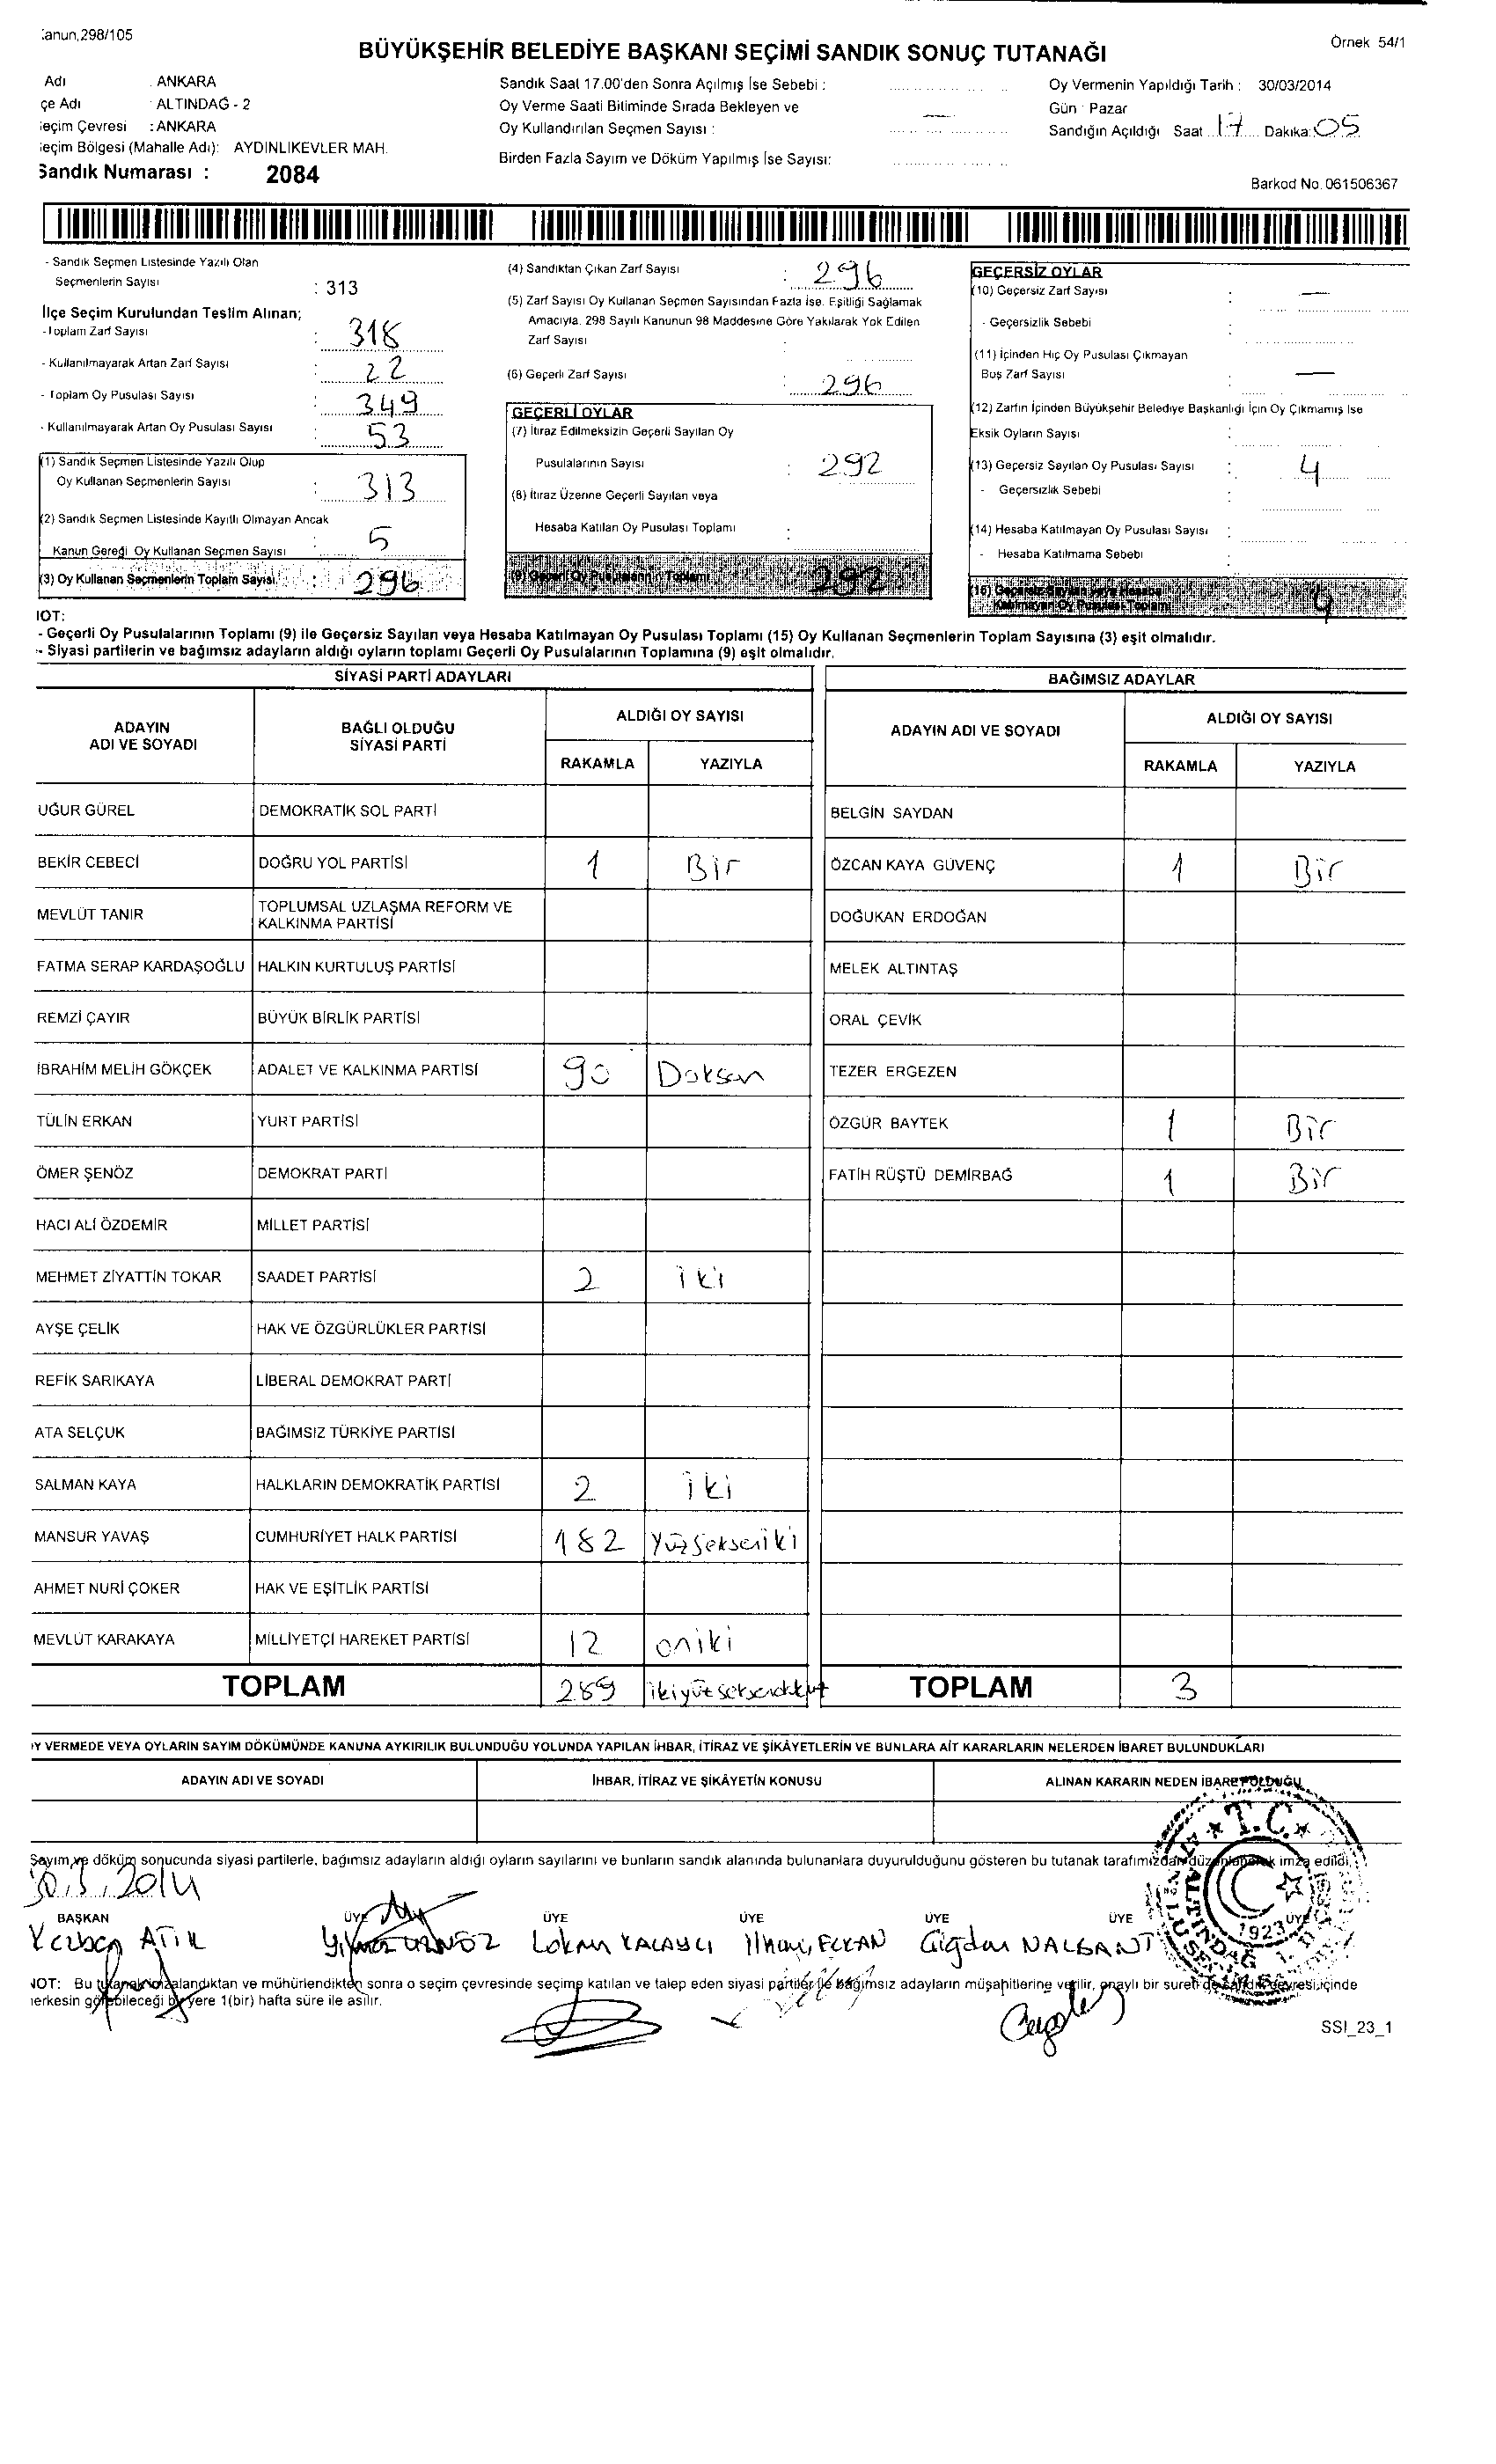 Kanun,298/105
Örnek 54/1
BÜYÜKŞEHİR BELEDİYE BAŞKANI SEÇİMİ SANDIK SONUÇ TUTANAĞI
Adı : ANKARA
çe Adı : ALTINDAĞ - 2
eçim Çevresi : ANKARA
eçim Bölgesi (Mahalle Adı): AYDINLIKEVLER MAH.
Sandık Numarası : 2084
Sandık Saat 17.00'den Sonra Açılmış İse Sebebi :
Oy Verme Saati Bitiminde Sırada Bekleyen ve
Oy Kullandırılan Seçmen Sayısı : —
Birden Fazla Sayım ve Döküm Yapılmış İse Sayısı:
Oy Vermenin Yapıldığı Tarih : 30/03/2014
Gün : Pazar
Sandığın Açıldığı Saat 17 Dakika: 05
Barkod No. 061506367
- Sandık Seçmen Listesinde Yazılı Olan
Seçmenlerin Sayısı : 313
İlçe Seçim Kurulundan Teslim Alınan;
- Toplam Zarf Sayısı : 318
- Kullanılmayarak Artan Zarf Sayısı : 22
- Toplam Oy Pusulası Sayısı : 349
- Kullanılmayarak Artan Oy Pusulası Sayısı : 53
(1) Sandık Seçmen Listesinde Yazılı Olup
Oy Kullanan Seçmenlerin Sayısı : 313
(2) Sandık Seçmen Listesinde Kayıtlı Olmayan Ancak
Kanun Gereği Oy Kullanan Seçmen Sayısı : 5
(3) Oy Kullanan Seçmenlerin Toplam Sayısı : 296
(4) Sandıktan Çıkan Zarf Sayısı : 296
(5) Zarf Sayısı Oy Kullanan Seçmen Sayısından Fazla İse, Eşitliği Sağlamak
Amacıyla, 298 Sayılı Kanunun 98 Maddesine Göre Yakılarak Yok Edilen
Zarf Sayısı :
(6) Geçerli Zarf Sayısı : 296
GEÇERLİ OYLAR
(7) İtiraz Edilmeksizin Geçerli Sayılan Oy
Pusulalarının Sayısı : 292
(8) İtiraz Üzerine Geçerli Sayılan veya
Hesaba Katılan Oy Pusulası Toplamı :
(9) Geçerli Oy Pusulalarının Toplamı 292
GEÇERSİZ OYLAR
(10) Geçersiz Zarf Sayısı : —
- Geçersizlik Sebebi :
(11) İçinden Hiç Oy Pusulası Çıkmayan
Boş Zarf Sayısı : —
(12) Zarfın İçinden Büyükşehir Belediye Başkanlığı İçin Oy Çıkmamış İse
Eksik Oyların Sayısı :
(13) Geçersiz Sayılan Oy Pusulası Sayısı : 4
- Geçersizlik Sebebi :
(14) Hesaba Katılmayan Oy Pusulası Sayısı :
- Hesaba Katılmama Sebebi :
(15) Geçersiz Sayılan veya Hesaba
Katılmayan Oy Pusulası Toplamı 4
NOT:
- Geçerli Oy Pusulalarının Toplamı (9) ile Geçersiz Sayılan veya Hesaba Katılmayan Oy Pusulası Toplamı (15) Oy Kullanan Seçmenlerin Toplam Sayısına (3) eşit olmalıdır.
- Siyasi partilerin ve bağımsız adayların aldığı oyların toplamı Geçerli Oy Pusulalarının Toplamına (9) eşit olmalıdır.
SİYASİ PARTİ ADAYLARI
ADAYIN ADI VE SOYADI BAĞLI OLDUĞU SİYASİ PARTİ ALDIĞI OY SAYISI
RAKAMLA YAZIYLA
UĞUR GÜREL DEMOKRATİK SOL PARTİ
BEKİR CEBECİ DOĞRU YOL PARTİSİ 1 Bir
MEVLÜT TANIR TOPLUMSAL UZLAŞMA REFORM VE KALKINMA PARTİSİ
FATMA SERAP KARDAŞOĞLU HALKIN KURTULUŞ PARTİSİ
REMZİ ÇAYIR BÜYÜK BİRLİK PARTİSİ
İBRAHİM MELİH GÖKÇEK ADALET VE KALKINMA PARTİSİ 90 Doksan
TÜLİN ERKAN YURT PARTİSİ
ÖMER ŞENÖZ DEMOKRAT PARTİ
HACI ALİ ÖZDEMİR MİLLET PARTİSİ
MEHMET ZİYATTİN TOKAR SAADET PARTİSİ 2 iki
AYŞE ÇELİK HAK VE ÖZGÜRLÜKLER PARTİSİ
REFİK SARIKAYA LİBERAL DEMOKRAT PARTİ
ATA SELÇUK BAĞIMSIZ TÜRKİYE PARTİSİ
SALMAN KAYA HALKLARIN DEMOKRATİK PARTİSİ 2 iki
MANSUR YAVAŞ CUMHURİYET HALK PARTİSİ 182 Yüzsekseniki
AHMET NURİ ÇOKER HAK VE EŞİTLİK PARTİSİ
MEVLÜT KARAKAYA MİLLİYETÇİ HAREKET PARTİSİ 12 oniki
TOPLAM 289 ikiyüzseksendokuz
BAĞIMSIZ ADAYLAR
ADAYIN ADI VE SOYADI ALDIĞI OY SAYISI
RAKAMLA YAZIYLA
BELGİN SAYDAN
ÖZCAN KAYA GÜVENÇ 1 Bir
DOĞUKAN ERDOĞAN
MELEK ALTINTAŞ
ORAL ÇEVİK
TEZER ERGEZEN
ÖZGÜR BAYTEK 1 Bir
FATİH RÜŞTÜ DEMİRBAĞ 1 Bir
TOPLAM 3
OY VERMEDE VEYA OYLARIN SAYIM DÖKÜMÜNDE KANUNA AYKIRILIK BULUNDUĞU YOLUNDA YAPILAN İHBAR, İTİRAZ VE ŞİKÂYETLERİN VE BUNLARA AİT KARARLARIN NELERDEN İBARET BULUNDUKLARI
ADAYIN ADI VE SOYADI İHBAR, İTİRAZ VE ŞİKÂYETİN KONUSU ALINAN KARARIN NEDEN İBARET OLDUĞU
Sayım ve döküm sonucunda siyasi partilerle, bağımsız adayların aldığı oyların sayılarını ve bunların sandık alanında bulunanlara duyurulduğunu gösteren bu tutanak tarafımızdan düzenlenerek imza edildi.
30.3.2014
T.C.
ALTINDAĞ
1923
BAŞKAN ÜYE ÜYE ÜYE ÜYE ÜYE ÜYE
ATİK Lokman KALAYCI İlhan ERKAN Çiğdem NALBANT
NOT: Bu tutanak imzalandıktan ve mühürlendikten sonra o seçim çevresinde seçime katılan ve talep eden siyasi partiler ile bağımsız adayların müşahitlerine verilir, onaylı bir sureti de sandık çevresi içinde
herkesin görebileceği bir yere 1(bir) hafta süre ile asılır.
SSI_23_1